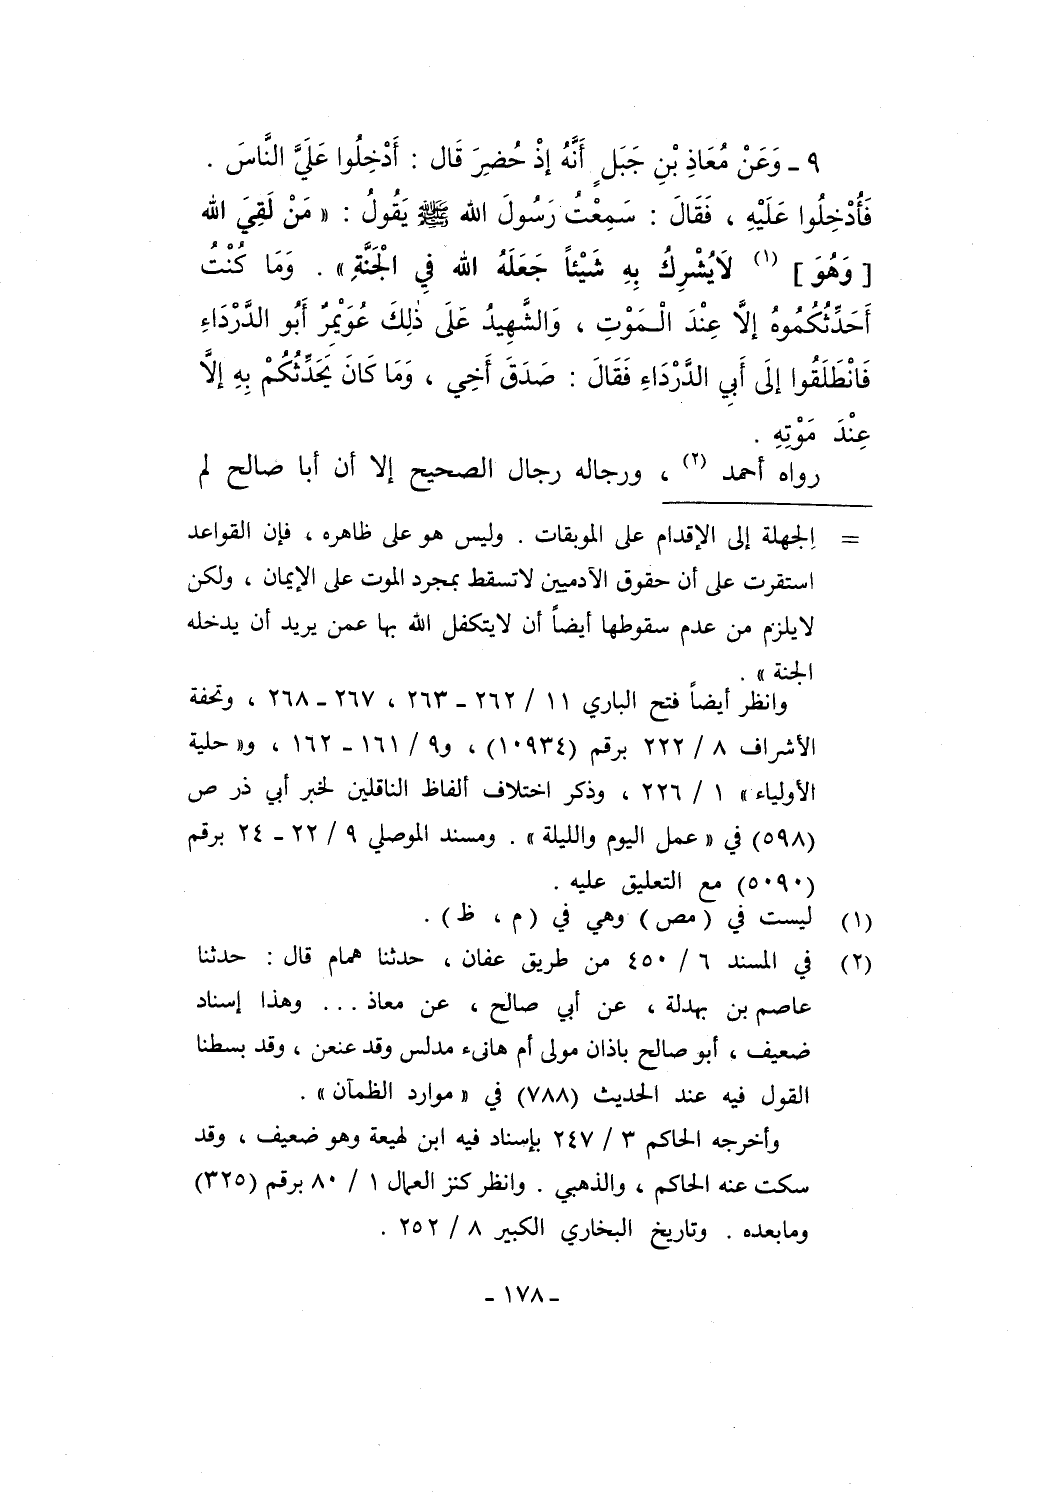 ٩ ـ وَعَنْ مُعَاذِ بْنِ جَبَلٍ أَنَّهُ إِذْ حُضِرَ قَالَ : أَدْخِلُوا عَلَيَّ النَّاسَ .
فَأُدْخِلُوا عَلَيْهِ ، فَقَالَ : سَمِعْتُ رَسُولَ الله ﷺ يَقُولُ : « مَنْ لَقِيَ الله
[ وَهُوَ ] (١) لَايُشْرِكُ بِهِ شَيْئاً جَعَلَهُ الله فِي الْجَنَّةِ » . وَمَا كُنْتُ
أُحَدِّثُكُمُوهُ إلَّا عِنْدَ الْـمَوْتِ ، وَالشَّهِيدُ عَلَى ذٰلِكَ عُوَيْمِرُ أَبُو الدَّرْدَاءِ
فَانْطَلَقُوا إلَى أَبِي الدَّرْدَاءِ فَقَالَ : صَدَقَ أَخِي ، وَمَا كَانَ يُحَدِّثُكُمْ بِهِ إلَّا
عِنْدَ مَوْتِهِ .
رواه أحمد (٢) ، ورجاله رجال الصحيح إلا أن أبا صالح لم
= الجهلة إلى الإقدام على الموبقات . وليس هو على ظاهره ، فإن القواعد
استقرت على أن حقوق الآدميين لاتسقط بمجرد الموت على الإيمان ، ولكن
لايلزم من عدم سقوطها أيضاً أن لايتكفل الله بها عمن يريد أن يدخله
الجنة » .
وانظر أيضاً فتح الباري ١١ / ٢٦٢ ـ ٢٦٣ ، ٢٦٧ ـ ٢٦٨ ، وتحفة
الأشراف ٨ / ٢٢٢ برقم (١٠٩٣٤) ، و٩ / ١٦١ ـ ١٦٢ ، و« حلية
الأولياء » ١ / ٢٢٦ ، وذكر اختلاف ألفاظ الناقلين لخبر أبي ذر ص
(٥٩٨) في « عمل اليوم والليلة » . ومسند الموصلي ٩ / ٢٢ ـ ٢٤ برقم
(٥٠٩٠) مع التعليق عليه .
(١) ليست في ( مص ) وهي في ( م ، ظ ) .
(٢) في المسند ٦ / ٤٥٠ من طريق عفان ، حدثنا همام قال : حدثنا
عاصم بن بهدلة ، عن أبي صالح ، عن معاذ ... وهذا إسناد
ضعيف ، أبو صالح باذان مولى أم هانىء مدلس وقد عنعن ، وقد بسطنا
القول فيه عند الحديث (٧٨٨) في « موارد الظمآن » .
وأخرجه الحاكم ٣ / ٢٤٧ بإسناد فيه ابن لهيعة وهو ضعيف ، وقد
سكت عنه الحاكم ، والذهبي . وانظر كنز العمال ١ / ٨٠ برقم (٣٢٥)
ومابعده . وتاريخ البخاري الكبير ٨ / ٢٥٢ .
ـ ١٧٨ ـ